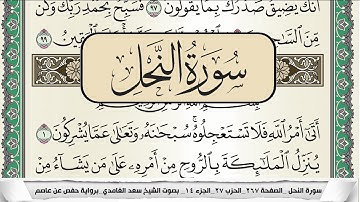 أنك يضيق صدرك بما يقولون ٩٧ فسبح بحمد ربك وكن
من السا
قين ٩٩
سورة النحل
أتى أمر الله فلا تستعجلوه سبحنه وتعلى عما يشركون ١
ينزل الملئكة بالروح من أمره على من يشاء من
سورة النحل _ الصفحة ٢٦٧ _ الحزب ٢٧ _ الجزء ١٤ _ بصوت الشيخ سعد الغامدي _ برواية حفص عن عاصم